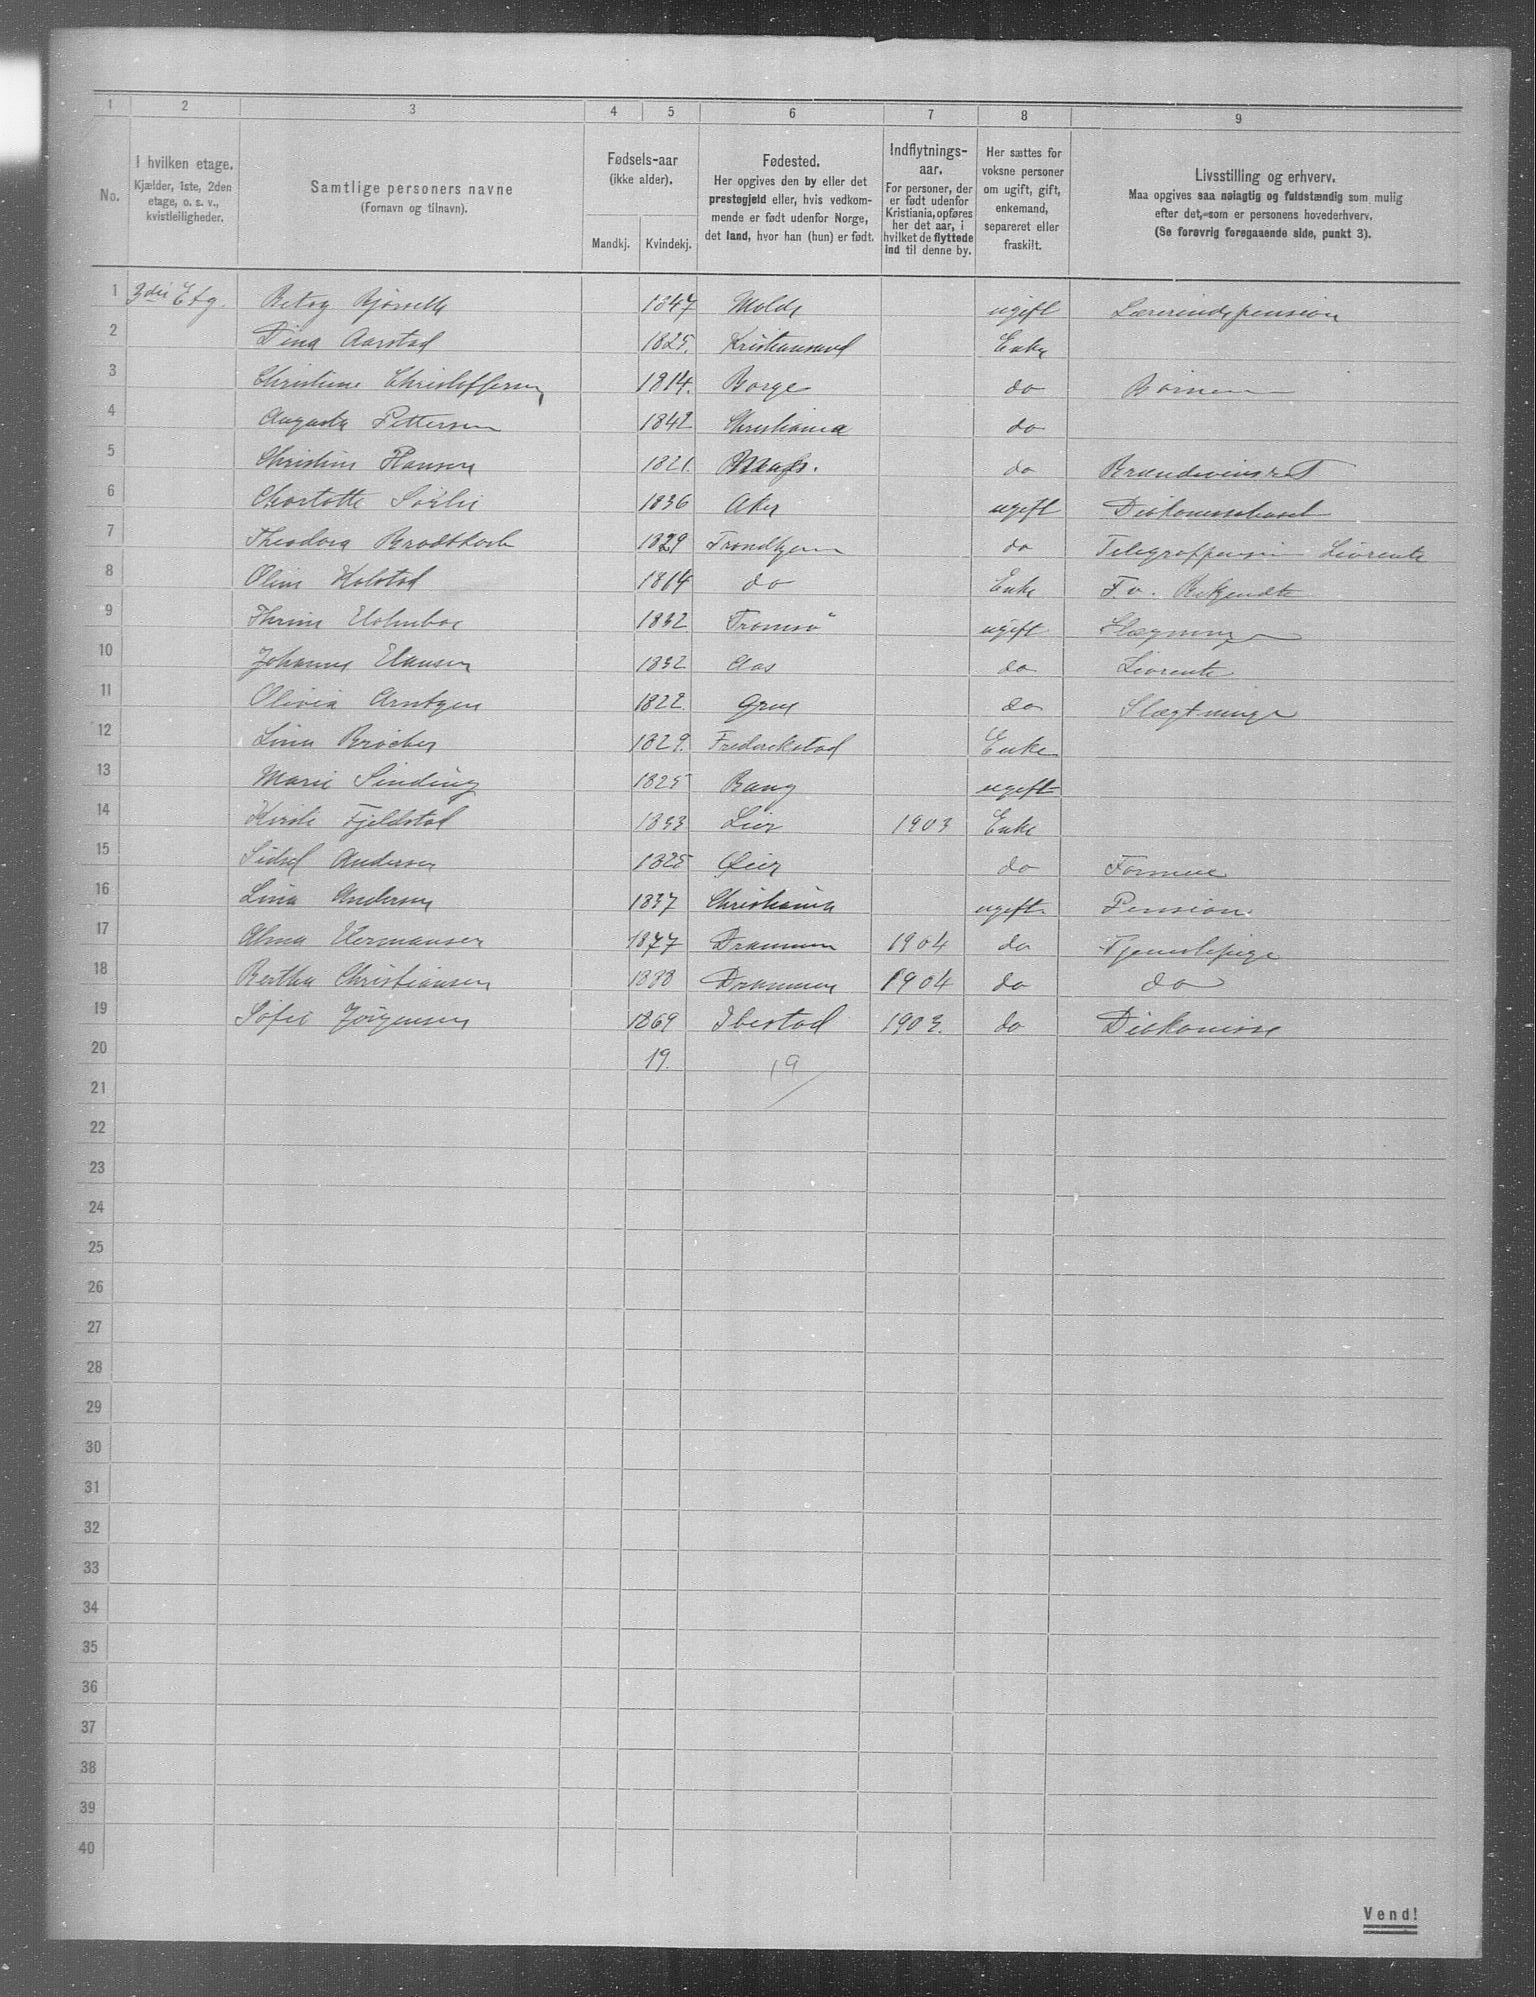 1 2 3 4 5 6 7 8 9
No.
I hvilken etage.
Kjælder, 1ste, 2den
etage, o. s. v.,
kvistleiligheder.
Samtlige personers navne
(Fornavn og tilnavn).
Fødsels-aar
(ikke alder).
Mandkj. Kvindekj.
Fødested.
Her opgives den by eller det
prestegjeld eller, hvis vedkom-
mende er født udenfor Norge,
det land, hvor han (hun) er født.
Indflytnings-
aar.
For personer, der
er født udenfor
Kristiania, opføres
her det aar, i
hvilket de flyttede
ind til denne by.
Her sættes for
voksne personer
om ugift, gift,
enkemand,
separeret eller
fraskilt.
Livsstilling og erhverv.
Maa opgives saa nøiagtig og fuldstændig som mulig
efter det, som er personens hovederhverv.
(Se forøvrig foregaaende side, punkt 3).
1 3die Etg. Betsy 1847 Molde ugift Lærerindepension
2 Dina Aarstad 1825. Kristiansand Enke
3 Christine Christoffersen 1814. Borge do Børnene
4 Augusta Pettersen 1842 Christiania do
5 Christine Hansen 1821. do
6 Charlotte Sørlie 1836 Aker ugift
7 Theodora 1829 Trondhjem do Livrente
8 Oline Kolstad 1814 do Enke F. v. Bekjendte
9 Thrine Holmboe 1832 Tromsø ugift
10 Johanne Hansen 1832 Aas do Livrente
11 Olivia Arntzen 1822 Grue do Slægtninge
12 Lina 1829. Frederikstad Enke
13 Marie Sinding 1825 Bang ugift
14 Kirsti Fjeldstad 1833 Lier 1903 Enke
15 Sidsel Andersen 1825 Øier do Formue
16 Lina Andersen 1837 Christiania ugift Pension
17 Alma Hermansen 1877 Drammen 1904 do Tjenestepige
18 Bertha Christiansen 1888 Drammen 1904 do do
19 Sofie Jørgensen 1869 Ibestad 1903. do Diakonisse
20 19. 19
21
22
23
24
25
26
27
28
29
30
31
32
33
34
35
36
37
38
39
40
Vend!